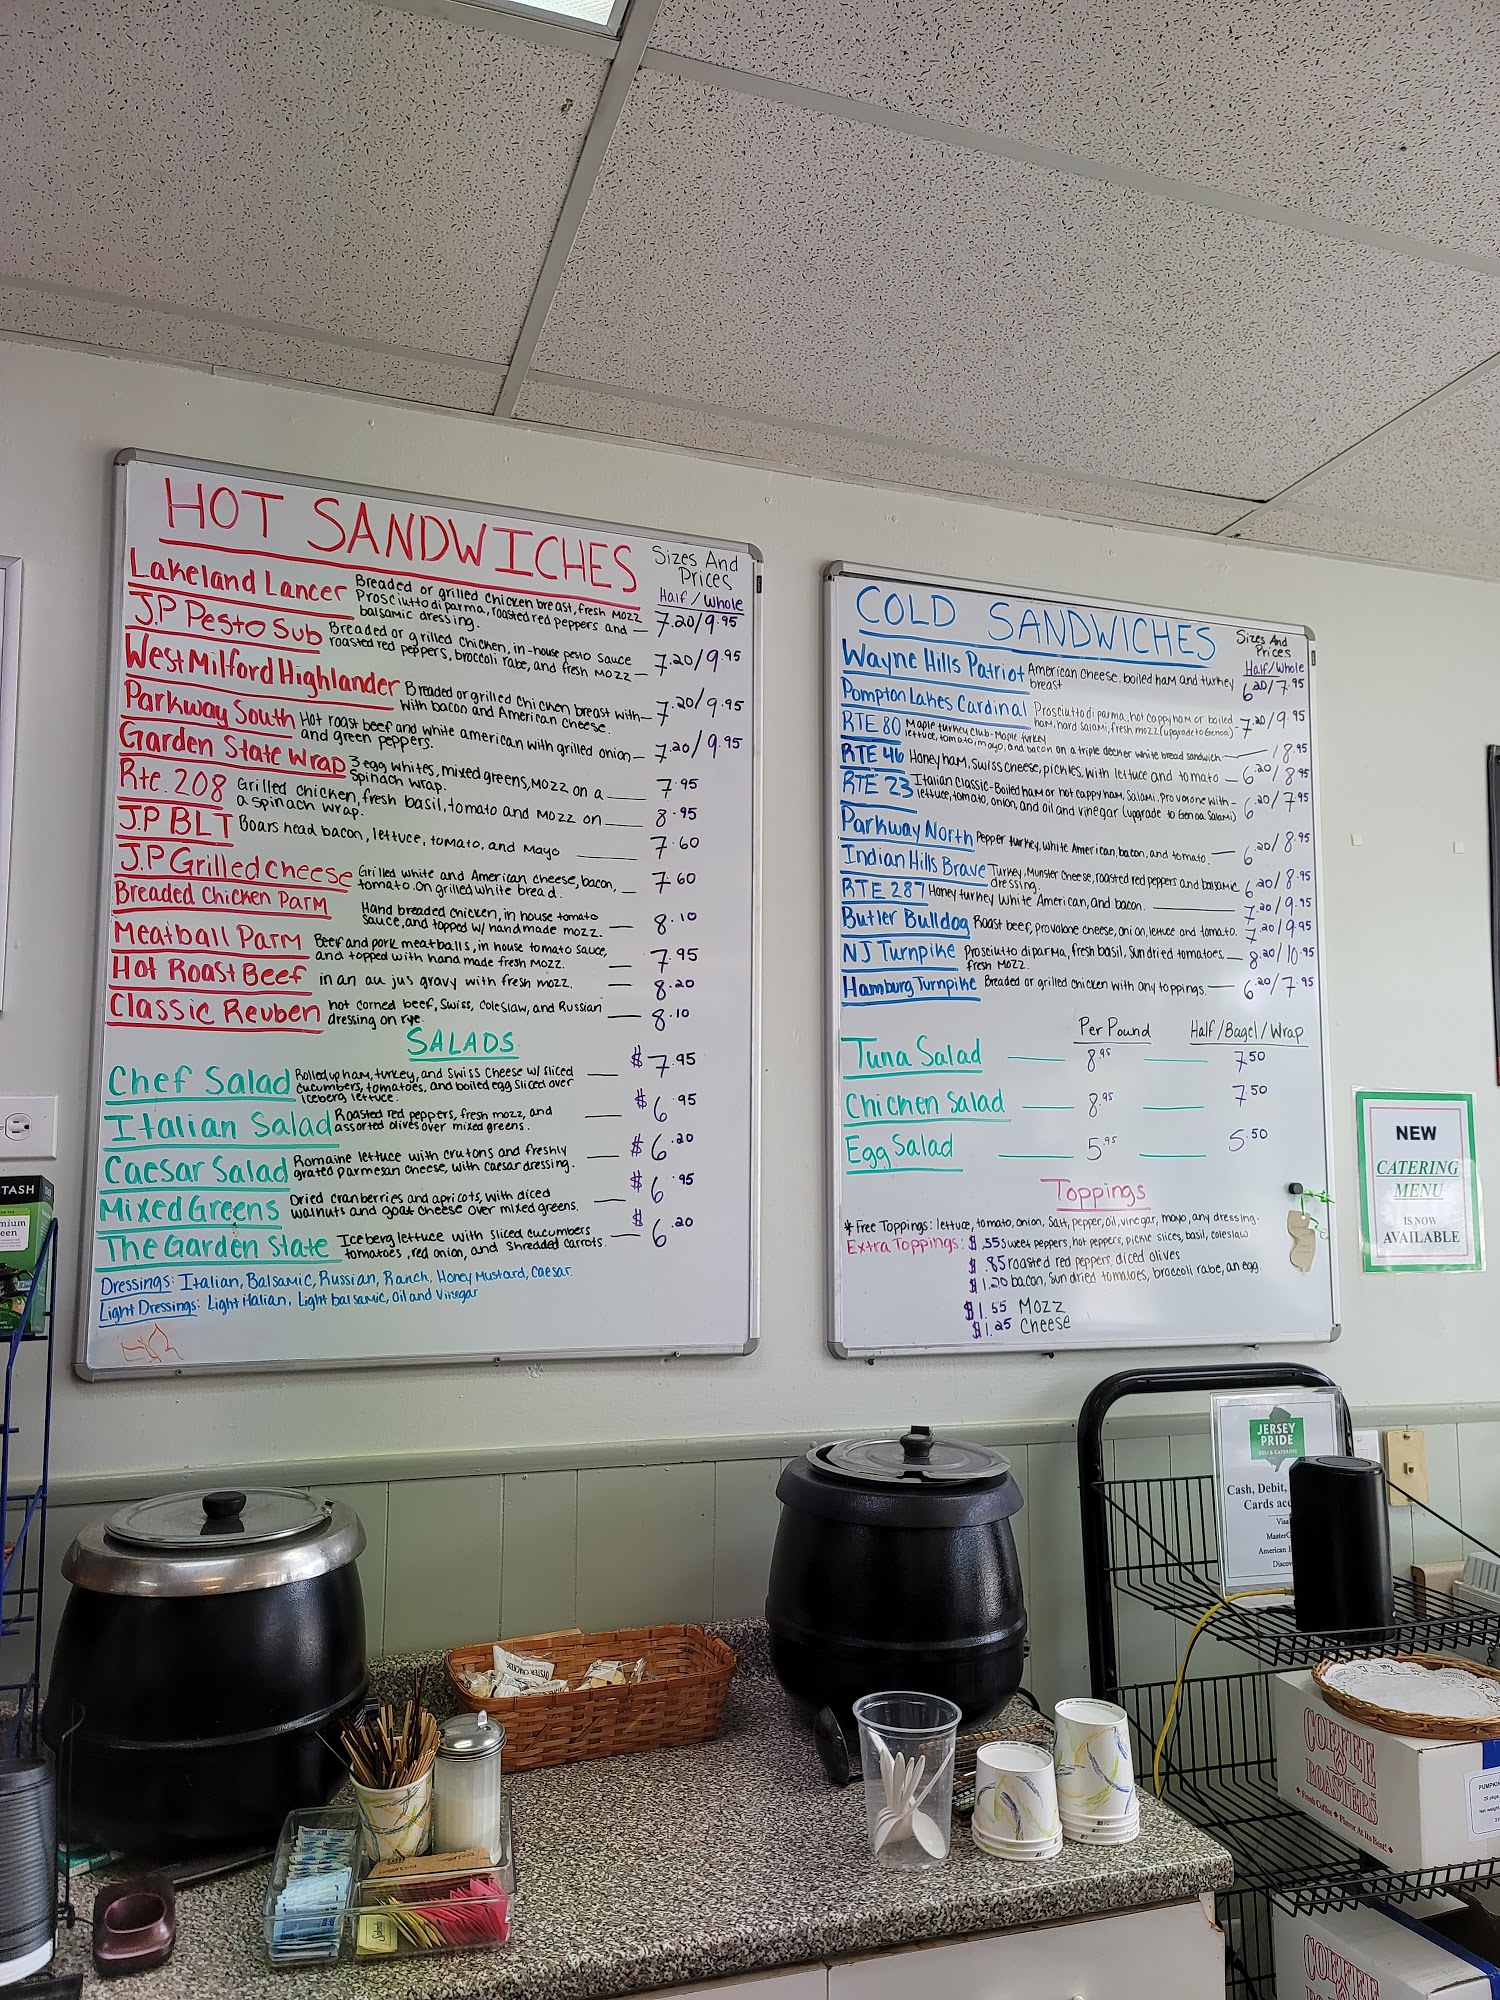 HOT SANDWICHES
Sizes And
Prices
Half / Whole
Lakeland Lancer Breaded or grilled chicken breast, fresh mozz
Prosciutto di parma, roasted red peppers and
balsamic dressing. 7.20/9.95
J.P Pesto Sub Breaded or grilled chicken, in-house pesto sauce
roasted red peppers, broccoli rabe, and fresh mozz 7.20/9.95
West Milford Highlander Breaded or grilled chicken breast with
with bacon and American cheese. 7.20/9.95
Parkway South Hot roast beef and white american with grilled onion
and green peppers. 7.20/9.95
Garden State Wrap 3 egg whites, mixed greens, mozz on a
spinach wrap. 7.95
Rte. 208 Grilled chicken, fresh basil, tomato and mozz on
a spinach wrap. 8.95
J.P BLT Boars head bacon, lettuce, tomato, and mayo 7.60
J.P Grilled Cheese Grilled white and American cheese, bacon,
tomato. On grilled white bread. 7.60
Breaded Chicken Parm Hand breaded chicken, in house tomato
sauce, and topped w/ handmade mozz. 8.10
Meatball Parm Beef and pork meatballs, in house tomato sauce,
and topped with hand made fresh mozz. 7.95
Hot Roast Beef in an au jus gravy with fresh mozz. 8.20
Classic Reuben hot corned beef, Swiss, coleslaw, and Russian
dressing on rye. 8.10
SALADS
Chef Salad Rolled up ham, turkey, and Swiss cheese w/ sliced
cucumbers, tomatoes, and boiled egg sliced over
iceberg lettuce. $7.95
Italian Salad Roasted red peppers, fresh mozz, and
assorted olives over mixed greens. $6.95
Caesar Salad Romaine lettuce with crutons and freshly
grated parmesan cheese, with caesar dressing. $6.20
Mixed Greens Dried cranberries and apricots, with diced
walnuts and goat cheese over mixed greens. $6.95
The Garden State Iceberg lettuce with sliced cucumbers
tomatoes, red onion, and shredded carrots. $6.20
Dressings: Italian, Balsamic, Russian, Ranch, Honey Mustard, Caesar.
Light Dressings: Light Italian, Light balsamic, Oil and Vinegar
COLD SANDWICHES
Sizes And
Prices
Half/Whole
Wayne Hills Patriot American cheese, boiled ham and turkey
breast 6.20/7.95
Pompton Lakes Cardinal Prosciutto di parma, hot cappy ham or boiled
ham, hard salami, fresh mozz (upgrade to Genoa) 7.20/9.95
RTE 80 Maple turkey club-Maple turkey
lettuce, tomato, mayo, and bacon on a triple decker white bread sandwich /8.95
RTE 46 Honey ham, Swiss cheese, pickles, with lettuce and tomato 6.20/8.95
RTE 23 Italian classic-Boiled ham or hot cappy ham, Salami, Provolone with
lettuce, tomato, onion, and oil and vinegar (upgrade to Genoa Salami) 6.20/7.95
Parkway North Pepper turkey, white American, bacon, and tomato. 6.20/8.95
Indian Hills Brave Turkey, Munster cheese, roasted red peppers and balsamic
dressing. 6.20/8.95
RTE 287 Honey turkey white American, and bacon. 7.20/9.95
Butler Bulldog Roast beef, provolone cheese, onion, lettuce and tomato. 7.20/9.95
NJ Turnpike Prosciutto di parma, fresh basil, sun dried tomatoes,
fresh mozz. 8.20/10.95
Hamburg Turnpike Breaded or grilled chicken with any toppings. 6.20/7.95
Per Pound Half/Bagel/Wrap
Tuna Salad 8.95 7.50
Chicken Salad 8.95 7.50
Egg Salad 5.95 5.50
Toppings
*Free Toppings: lettuce, tomato, onion, salt, pepper, oil, vinegar, mayo, any dressing.
Extra Toppings: $.55 sweet peppers, hot peppers, pickle slices, basil, coleslaw
$.85 roasted red peppers, diced olives
$1.20 bacon, sun dried tomatoes, broccoli rabe, an egg.
$1.55 Mozz
$1.25 Cheese
NEW
CATERING
MENU
IS NOW
AVAILABLE
JERSEY
PRIDE
DELI & CATERING
Cash, Debit,
Cards
American
STASH
OYSTER CRACKERS
COFFEE
ROASTERS
Fresh Coffee Flavor At Its Best!
COFFEE